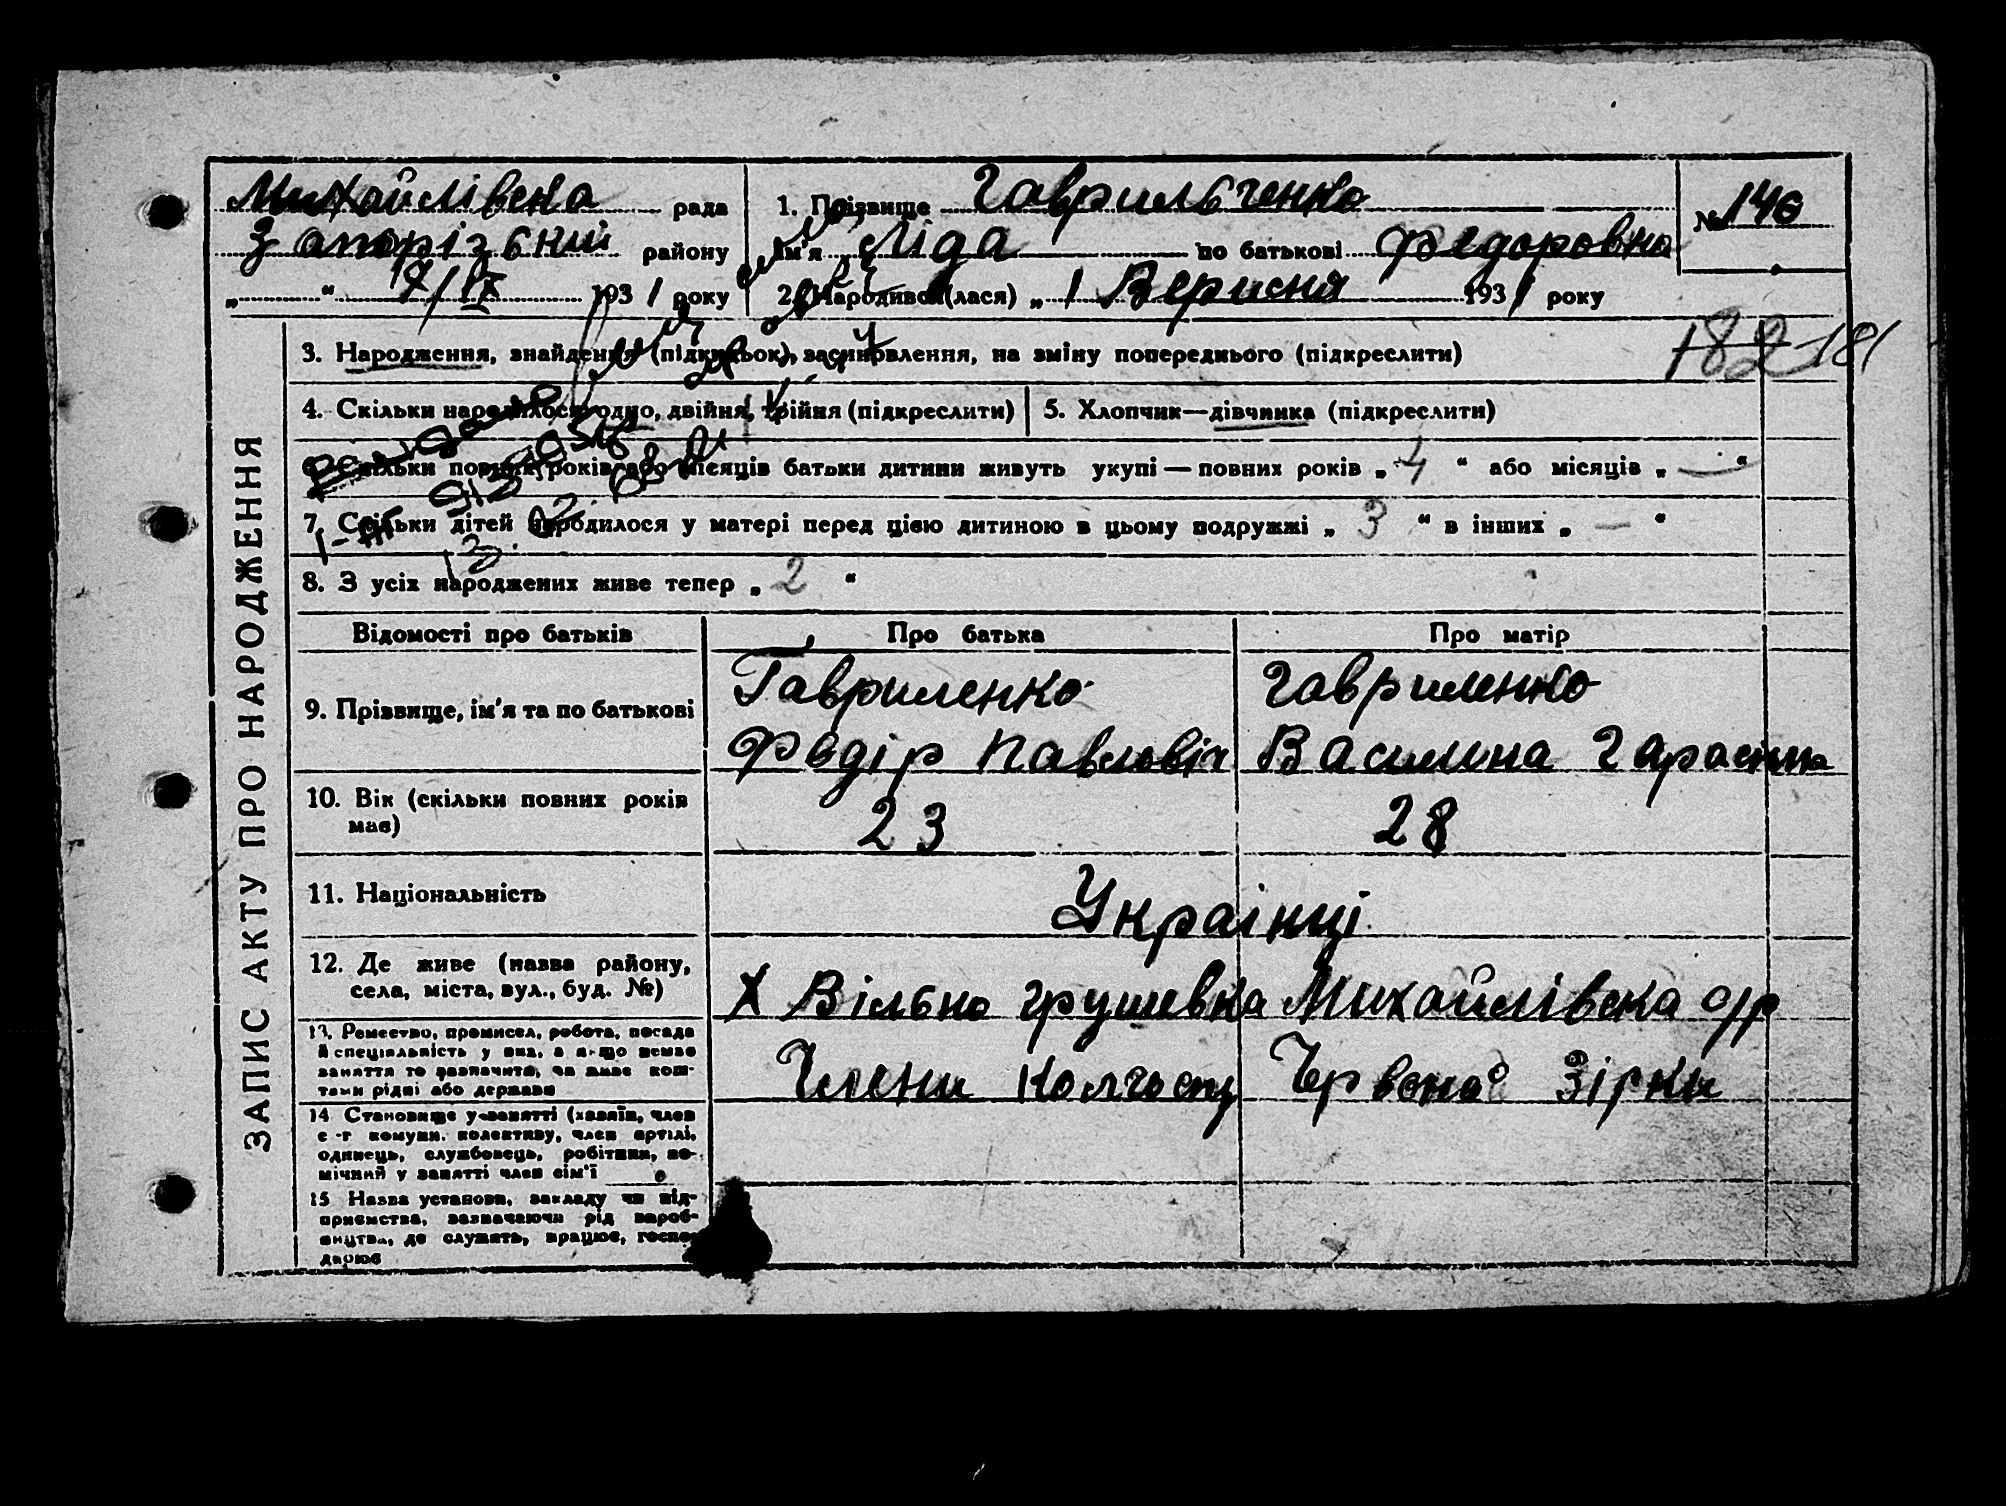 ЗАПИС АКТУ ПРО НАРОДЖЕННЯ
Михайлівска рада
Запорізький району
„ “ 7/IX 1931 року
1. Прізвище Гаврильченко
Ім'я Ліда по батькові Федоровна
№ 146
2. Народився(лася) „ 1 Вересня 1931 року
182 181
3. Народження, знайдення (підкидьок), засиновлення, на зміну попереднього (підкреслити)
4. Скільки народилося: одно, двійня, трійня (підкреслити)
5. Хлопчик—дівчинка (підкреслити)
6. Скільки повних років або місяців батьки дитини живуть укупі — повних років „ 4 “ або місяців „ — “
7. Скільки дітей народилося у матері перед цією дитиною в цьому подружжі „ 3 “ в інших „ — “
8. З усіх народжених живе тепер „ 2 “
Відомості про батьків
Про батька
Про матір
9. Прізвище, ім'я та по батькові
Гавриленко
Федір Павловіч
Гавриленко
Василина Гарасімна
10. Вік (скільки повних років
має)
23
28
11. Національність
Українці
12. Де живе (назва району,
села, міста, вул., буд. №)
Х Вільно Грушевка Михайлівска с/р
13. Ремество, промисел, робота, посада
й спеціяльність у яка, а якщо немає
заняття то зазначити, чи живе кош-
тами рідні або держави
Члени Колгоспу Червона Зірки
14 Становище у занятті (хазяїн, член
с.-г комуни, колективу, член артілі,
одинець, службовець, робітник, по-
мічний у занятті член сім'ї
15 Назва установи, закладу чи під-
приємства, зазначаючи рід вироб-
ництва, де служить, працює, госпо-
дарює